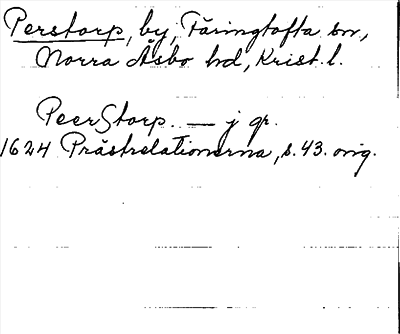 Perstorp, by, Färingtofta sn,
Norra Åsbo hd, Krist. l.
PeerStorp. — j gr.
1624 Prästrelationerna, s. 43. orig.